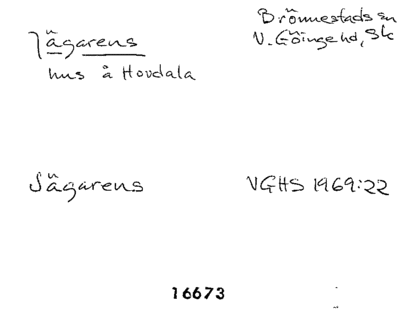 Jägarens
hus å Hovdala
Brönnestads sn
V. Göinge hd, Sk
Jägarens
VGHS 1969:22
16673